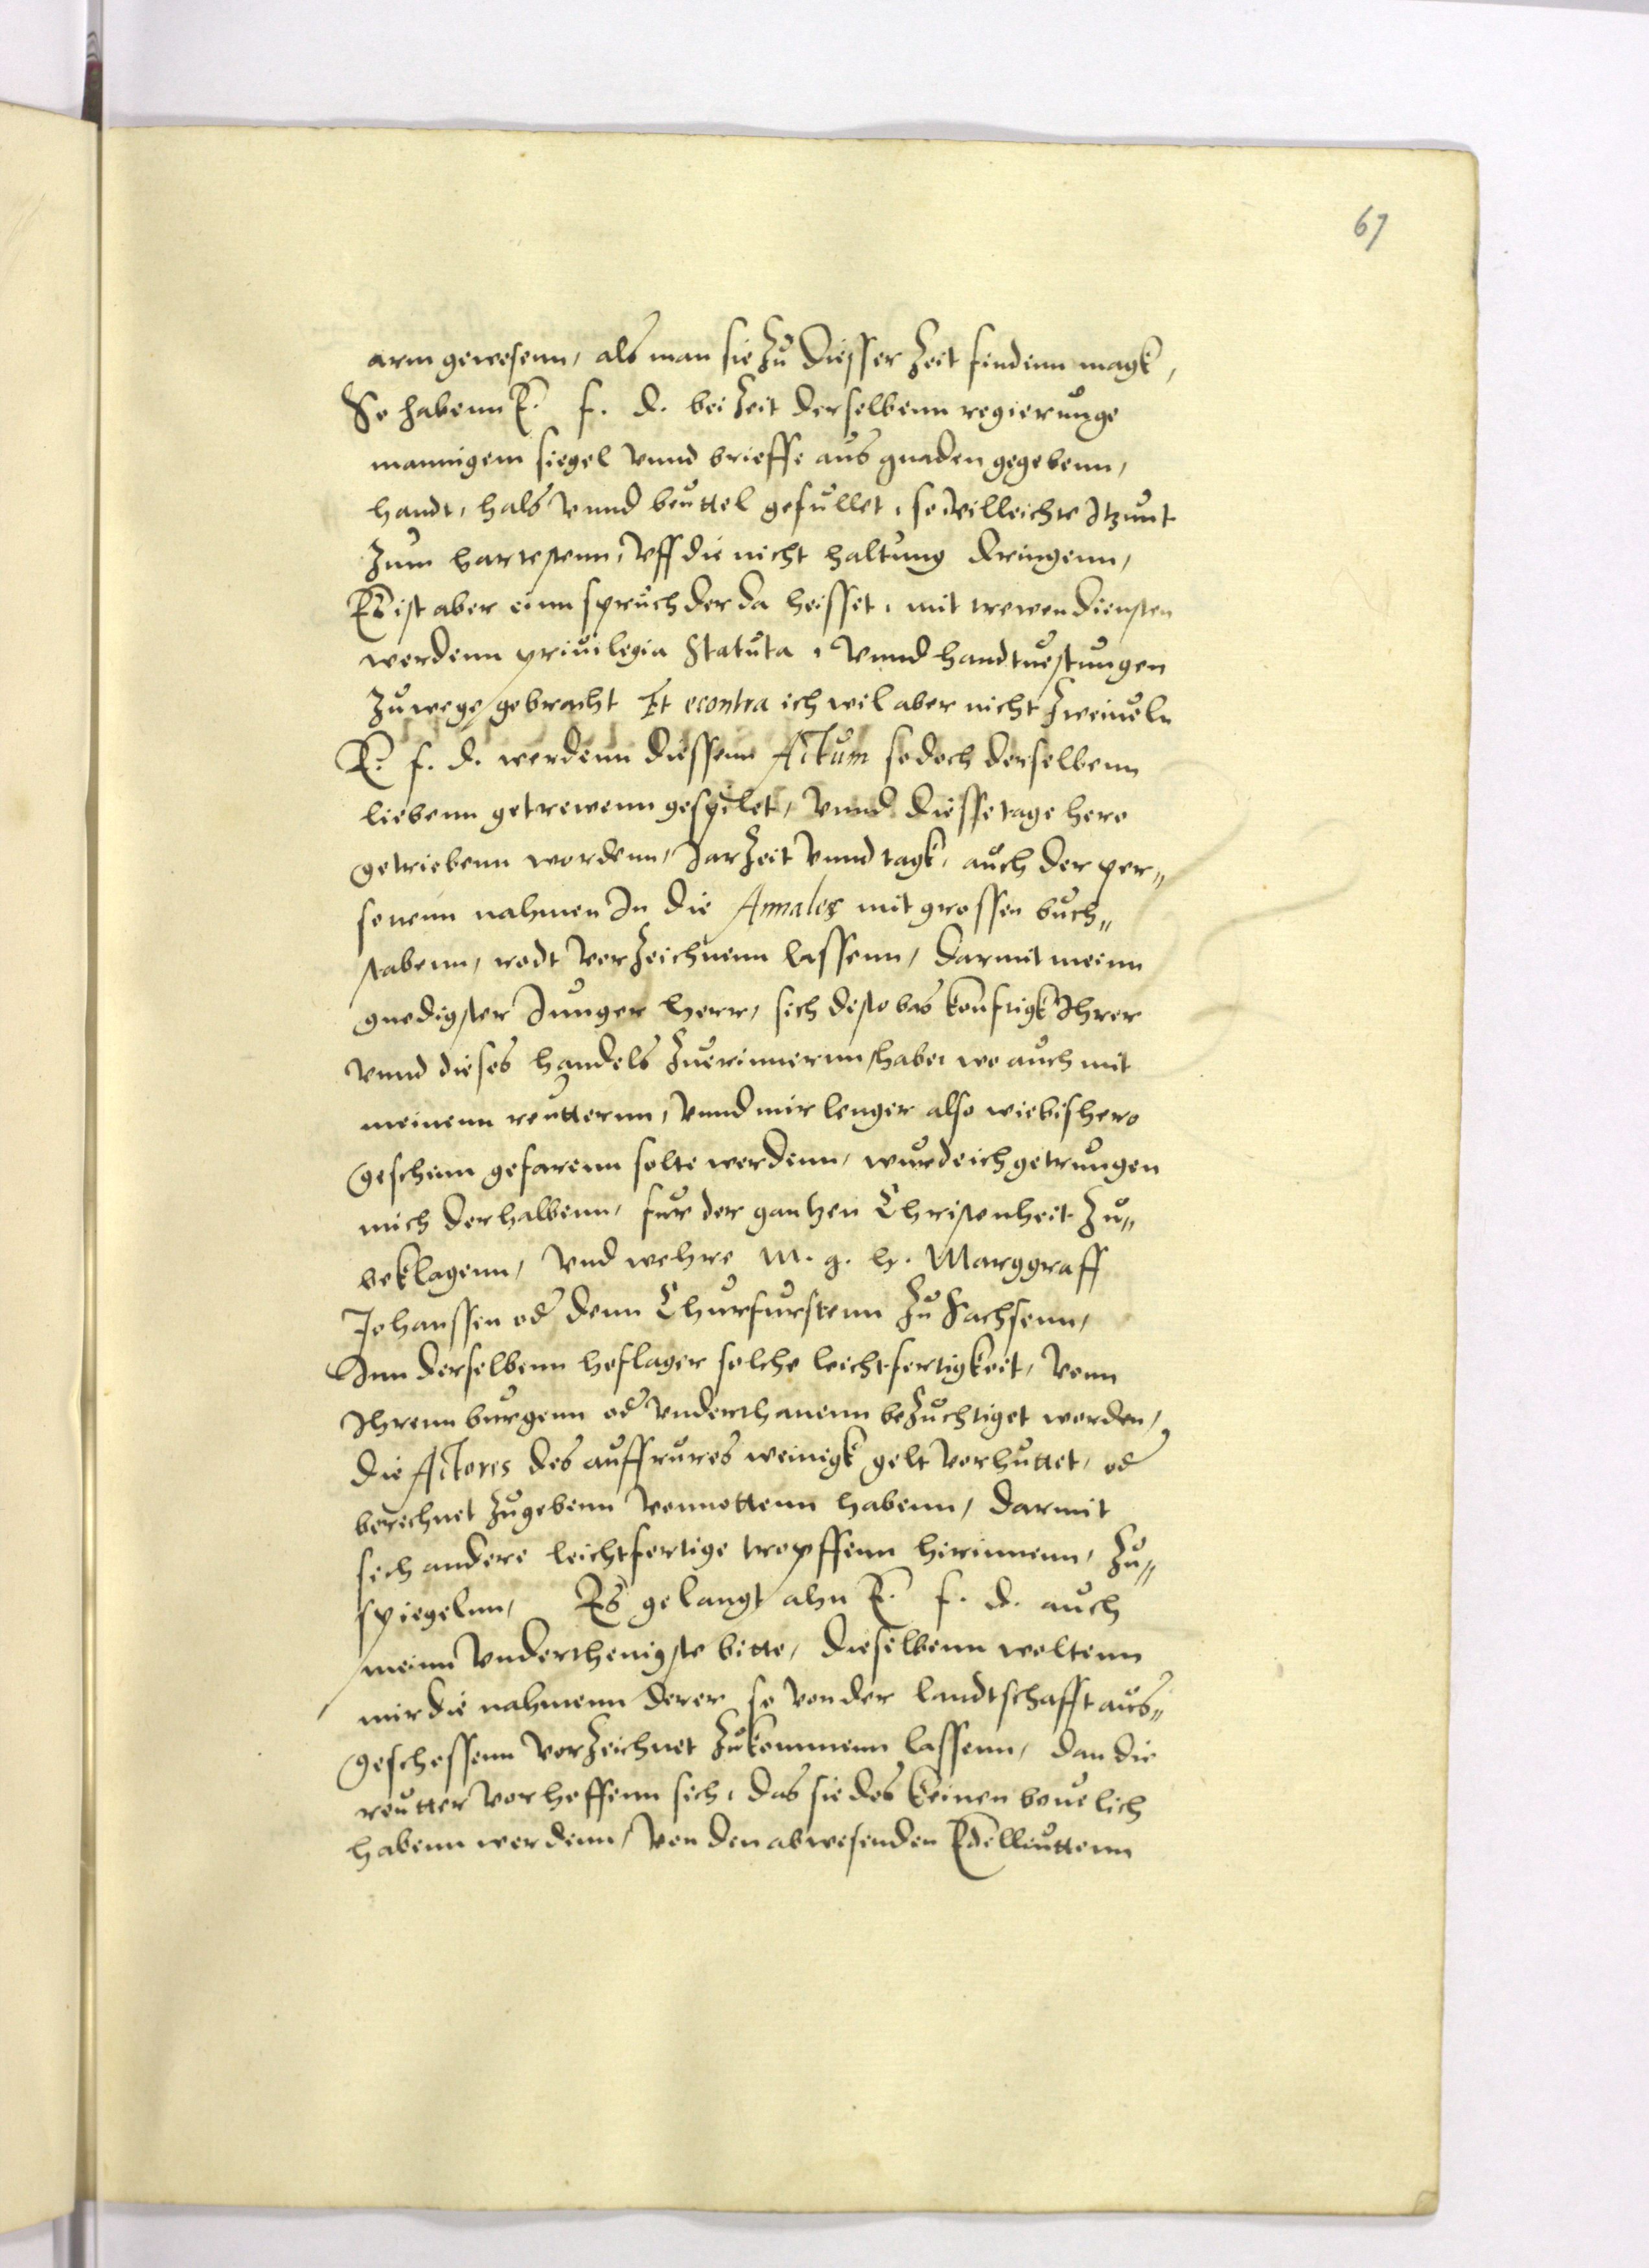 67
arm gewesenn, als man sie zu diesser zeit findenn magk,
So habenn E. f. d. bei zeit derselbenn regierunge
mannigem siegel vnnd brieffe aus gnaden gegebenn,
handt, hals vnnd beuttel gefullet, so villeichte Itzunt
zum hartestenn, vff die nicht haltung dringenn,
Es ist aber einn spruch der da heisset, mit trewen diensten
werdenn priuilegia Statuta, vnnd handtuestungen
zuwege gebracht Et econtra ich wil aber nicht zweiueln
E. f. d. werdenn diessenn Actum so doch derselbenn
liebenn getrewenn gespilet, vnnd diesse tage hero
getriebenn wordenn, Jar zeit vnnd tagk, auch der per„
sonenn nahmen In die Annales mit grossen buch„
stabenn, rodt vorzeichnenn lassenn, darmit meinn
gnedigster Junger herr, sich desto bas konfftigk Ihrer
vnnd dieses handels zuerinnernn habe, wo auch mit
meinenn reutternn, vnnd mir lenger also wie bishero
geschenn gefarenn solte werdenn, wurde ich getrungen
mich derhalbenn, fur der gantzen Christenheit zu„
beklagenn, vnd wehre M. g. h. Marggraff
Johanssen od denn Churfurstenn zu Sachsenn,
Inn derselbenn hoflager solche leichtfertigkeit, vonn
Ihrenn burgenn od vnderthanenn bezuchtiget worden,
die Actores des auffrures weinigk gelt vorhuttet, od
berechnet zugebenn vonnottenn habenn, darmit
sich andere leichtfertige tropffenn hirinnenn, zu„
spiegelnn, Es gelangt ahn E. f. d. auch
meinn vnderthenigste bitte, dieselbenn woltenn
mir die nahmenn derer so von der landtschafft aus„
geschossenn vorzeichnet zukommenn lassenn, dan die
reutter vorhoffenn sich, das sie des keinen beuelich
habenn werdenn, von den abwesenden Edelleuttenn